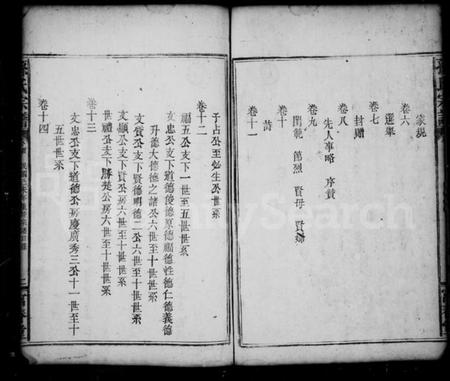 家規
卷六
選舉
卷七
封贈
卷八
先人事略 序贊
卷九
閨範 節烈 賢母 賢婦
卷十
詩
卷十一
子占公至必生公世系
卷十二
福五公支下一世至五世世系
文忠公支下道德俊德原德福德性德仁德義德
升德大德德之諸公六世至十世世系
文質公支下賢德明德二公六世至十世世系
文顯公支下賢公房六世至十世世系
世禮公支下勝楚公房六世至十世世系
卷十三
文忠公支下道德公房慶廣秀三公十一世至十
五世世系
卷十四
FamilySearch